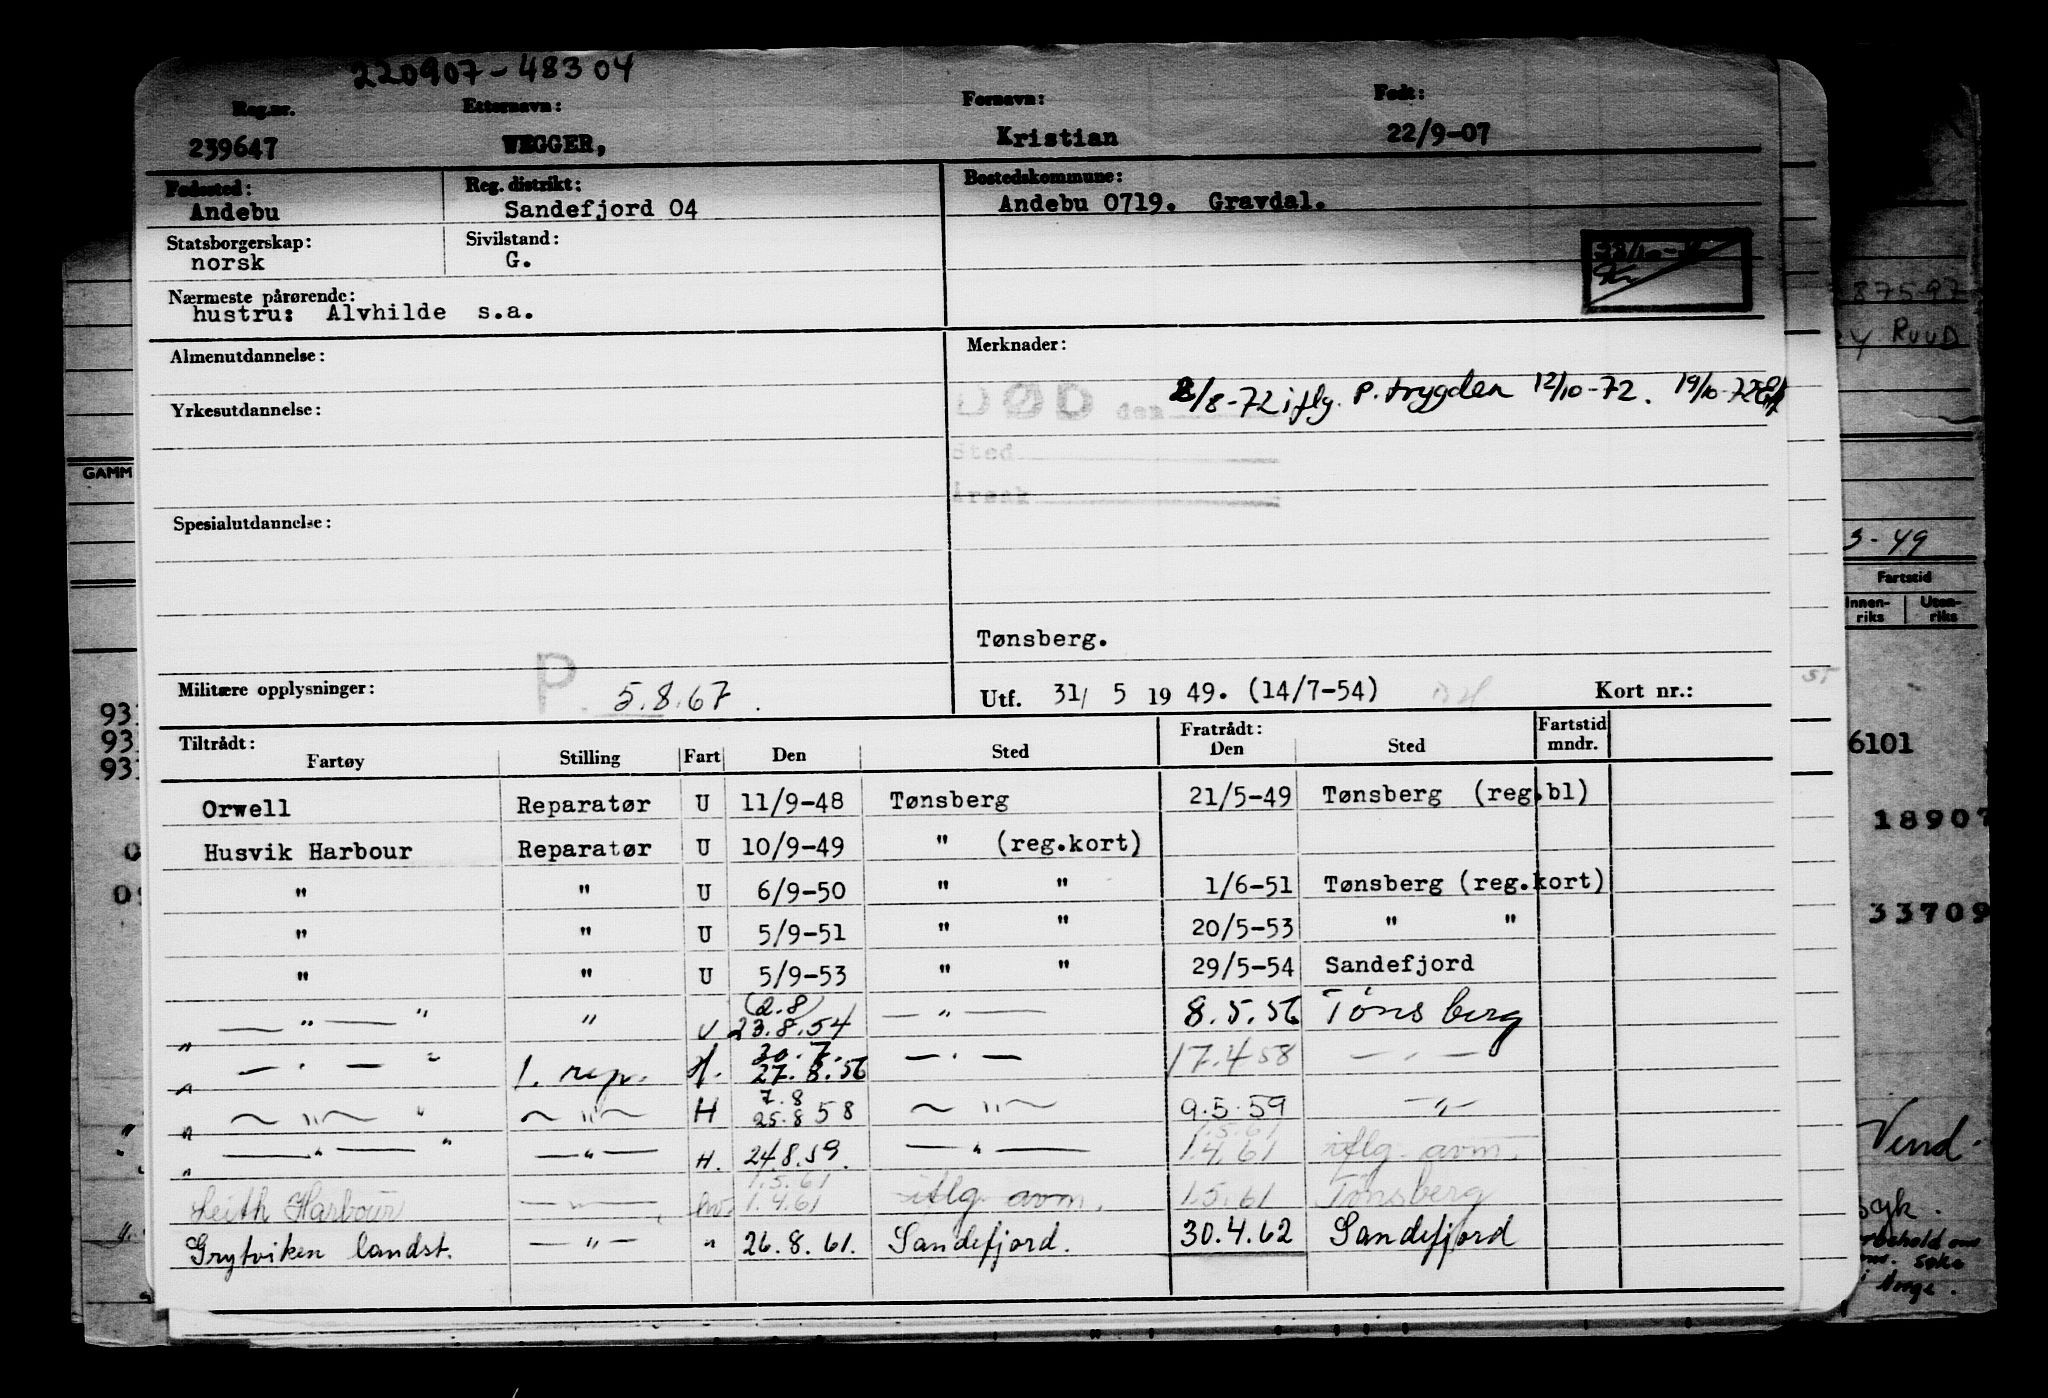 220907-48304
Reg.nr. Etternavn: Fornavn: Født:
239647 WEGGER, Kristian 22/9-07
Fødested: Reg. distrikt: Bostedskommune:
Andebu Sandefjord 04 Andebu 0719. Gravdal.
Statsborgerskap: Sivilstand:
norsk G.
Nærmeste pårørende:
hustru: Alvhilde s.a.
Almenutdannelse: Merknader:
DØD den 2/8-72 iflg. P. trygden 12/10-72. 19/10-72
Yrkesutdannelse:
Sted
Årsak
Spesialutdannelse:
Tønsberg.
Militære opplysninger: P. 5.8.67. Utf. 31/ 5 19 49. (14/7-54) Kort nr.:
Tiltrådt: Fratrådt: Fartstid
Fartøy Stilling Fart Den Sted Den Sted mndr.
Orwell Reparatør U 11/9-48 Tønsberg 21/5-49 Tønsberg (reg.bl)
Husvik Harbour Reparatør U 10/9-49 " (reg.kort)
" " U 6/9-50 " " 1/6-51 Tønsberg (reg.kort)
" " U 5/9-51 " " 20/5-53 " "
" " U 5/9-53 " " 29/5-54 Sandefjord
(2.8)
" — " — " " U 23.8.54 — " — 8.5.56 Tønsberg
30.7.
" — " — " 1. rep. H. 27.8.56 — " — 17.4.58 — " —
7.8
" — " — " — " — H 25.8 58 — " — 9.5.59 — " —
1.5.61
" — " — " — " — H. 24.8.59. — " — 1.4.61 iflg. avm.
1.5.61
Leith Harbour — " — hv. 1.4.61 iflg. avm. 1.5.61 Tønsberg
Grytviken landst. — " — " 26.8.61. Sandefjord. 30.4.62 Sandefjord
GAMM
87597
RUUD
3-49
Fartstid
Innen-riks Uten-riks
6101
18907
33709
Vend.